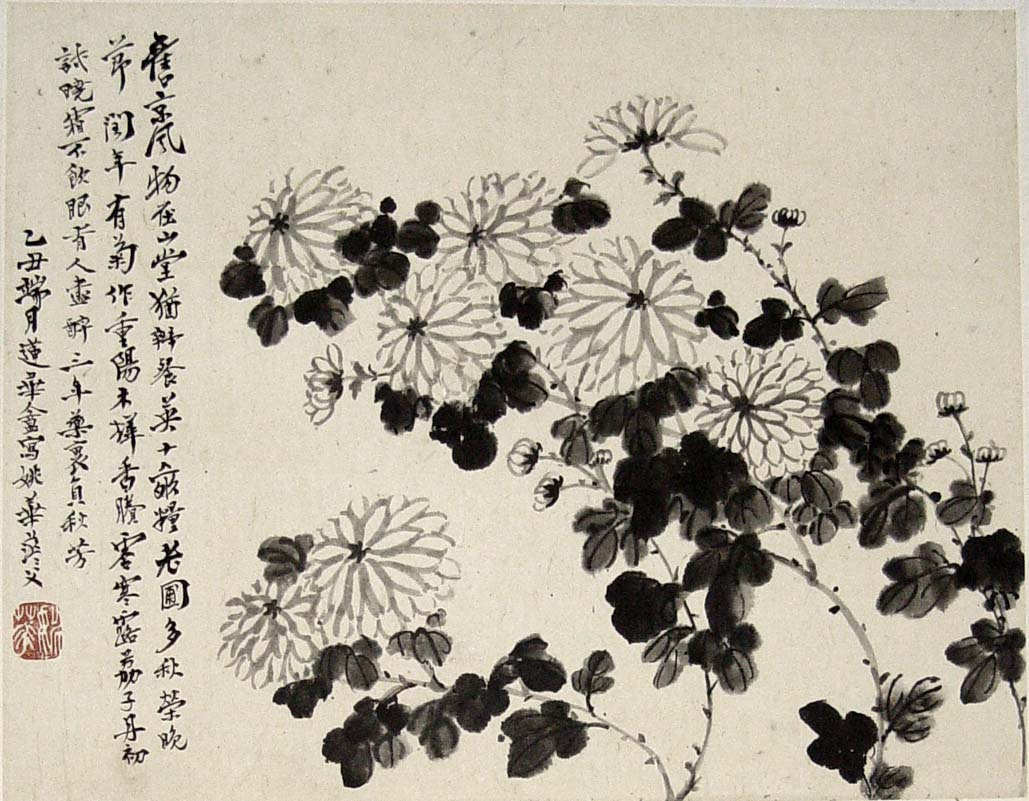 舊京風物在山堂猶辦餐英十畝糧老圃多秋榮晚
節閏年有菊作重陽木樨香賸零寒露荔子丹初
試曉霜不飲眼看人盡醉三年藥裹負秋芳
乙丑端月蓮華盦寫姚華茫父